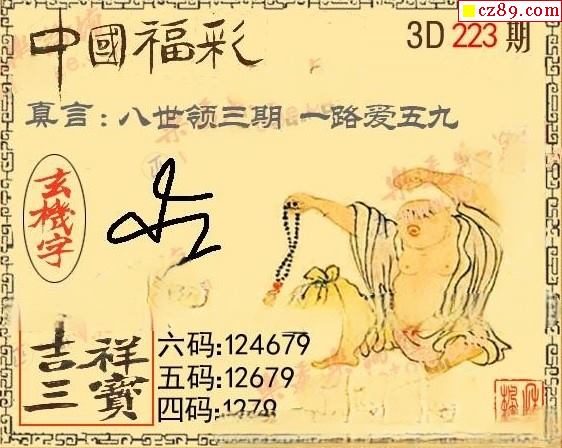 cz89.com
中國福彩
3D 223 期
真言：八世领三期 一路爱五九
玄機字
吉祥
三寶
六码:124679
五码:12679
四码:1279